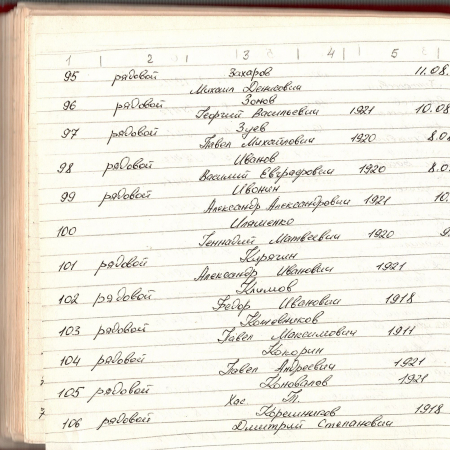 1 2 3 4 5
95 рядовой Захаров 11.08.
Михаил Денисович
96 рядовой Зонов
Георгий Васильевич 1921 10.08
97 рядовой Зуев
Павел Михайлович 1920 8.08
98 рядовой Иванов
Василий Евградрович 1920 8.0
99 рядовой Ивонин
Александр Александрович 1921 10.
100 Ильменко
Геннадий Матвеевич 1920 9
101 рядовой Кирягин
Александр Иванович 1921
102 рядовой Климов
Федор Иванович 1918
103 рядовой Кожевников
Павел Максимович 1911
104 рядовой Кокорин
Павел Андреевич 1921
105 рядовой Коновалов 1921
Хас. Т.
106 рядовой 1918
Дмитрий Степанович